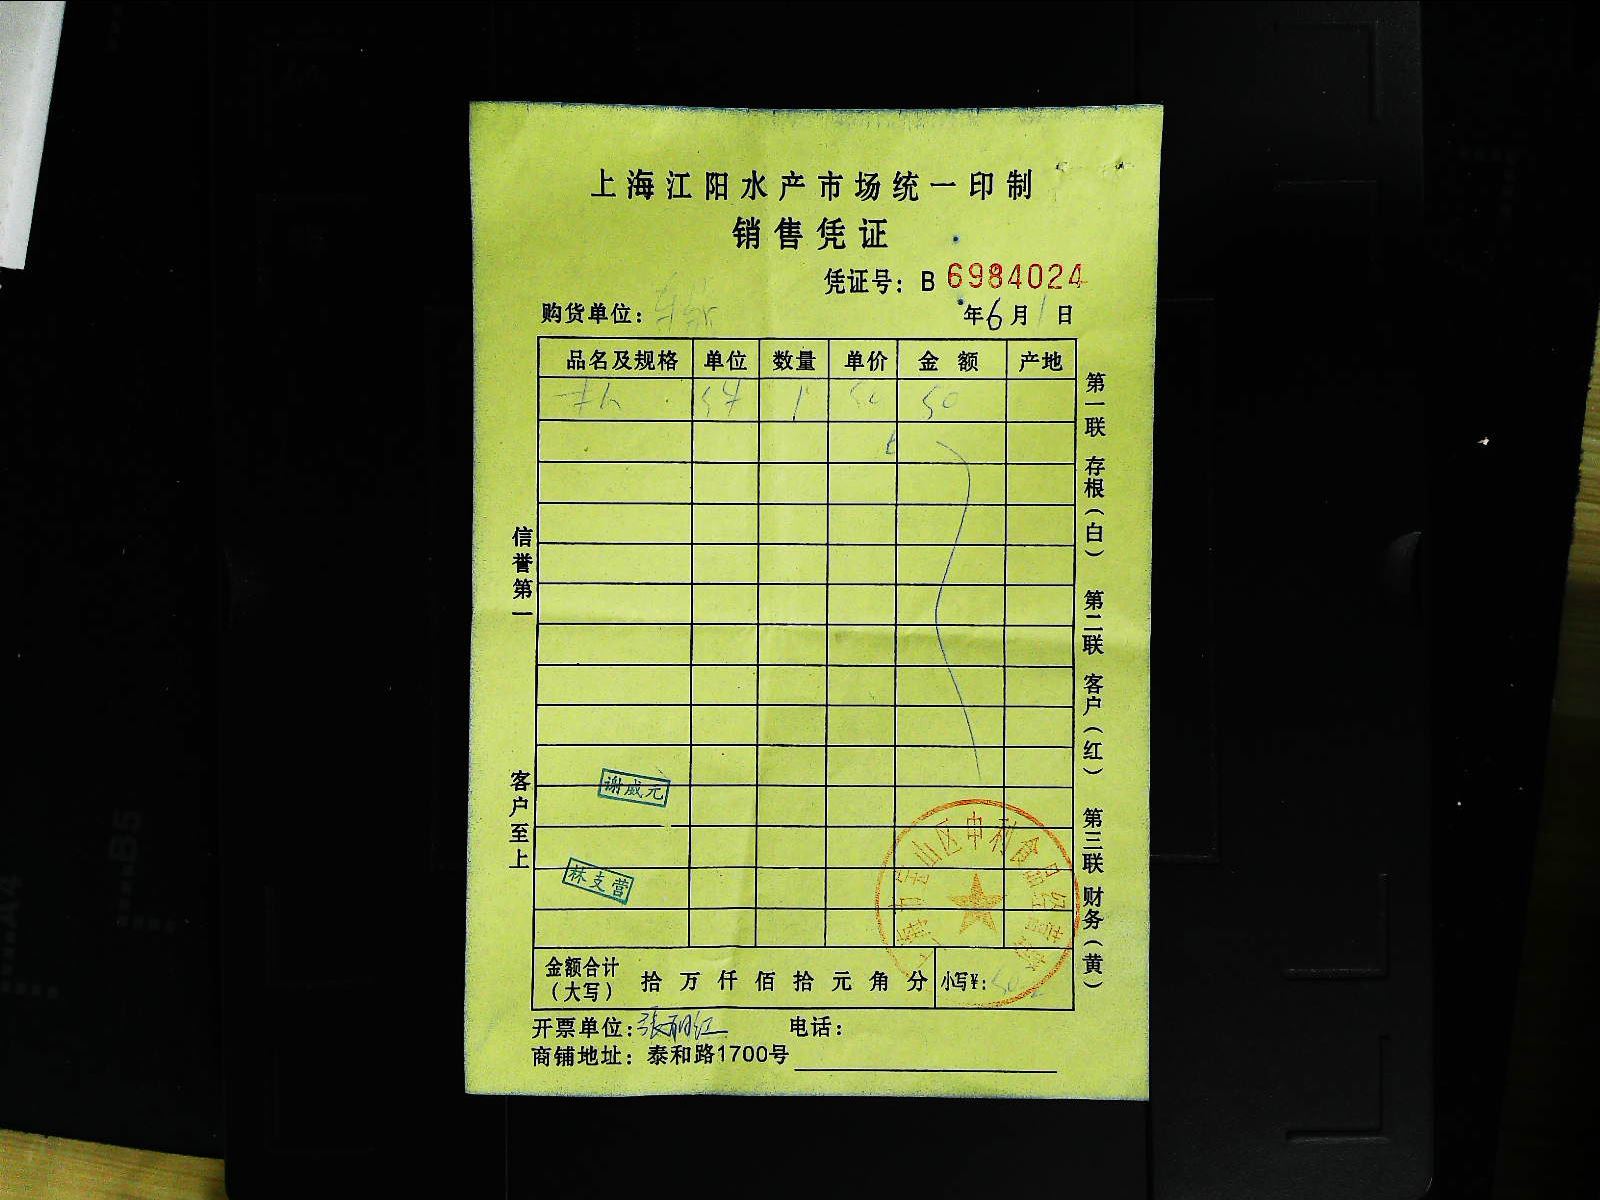 上海江阳水产市场统一印制
销售凭证
凭证号：B 6984024
购货单位： 年6月1日
品名及规格 单位 数量 单价 金额 产地
1 50 50
信誉第一
客户至上
第一联 存根（白） 第二联 客户（红） 第三联 财务（黄）
谢威元
林支营
宝山区申利食品经营部
金额合计（大写） 拾万仟佰拾元角分 小写¥：50
开票单位：张丽红 电话：
商铺地址：泰和路1700号
B5
A4